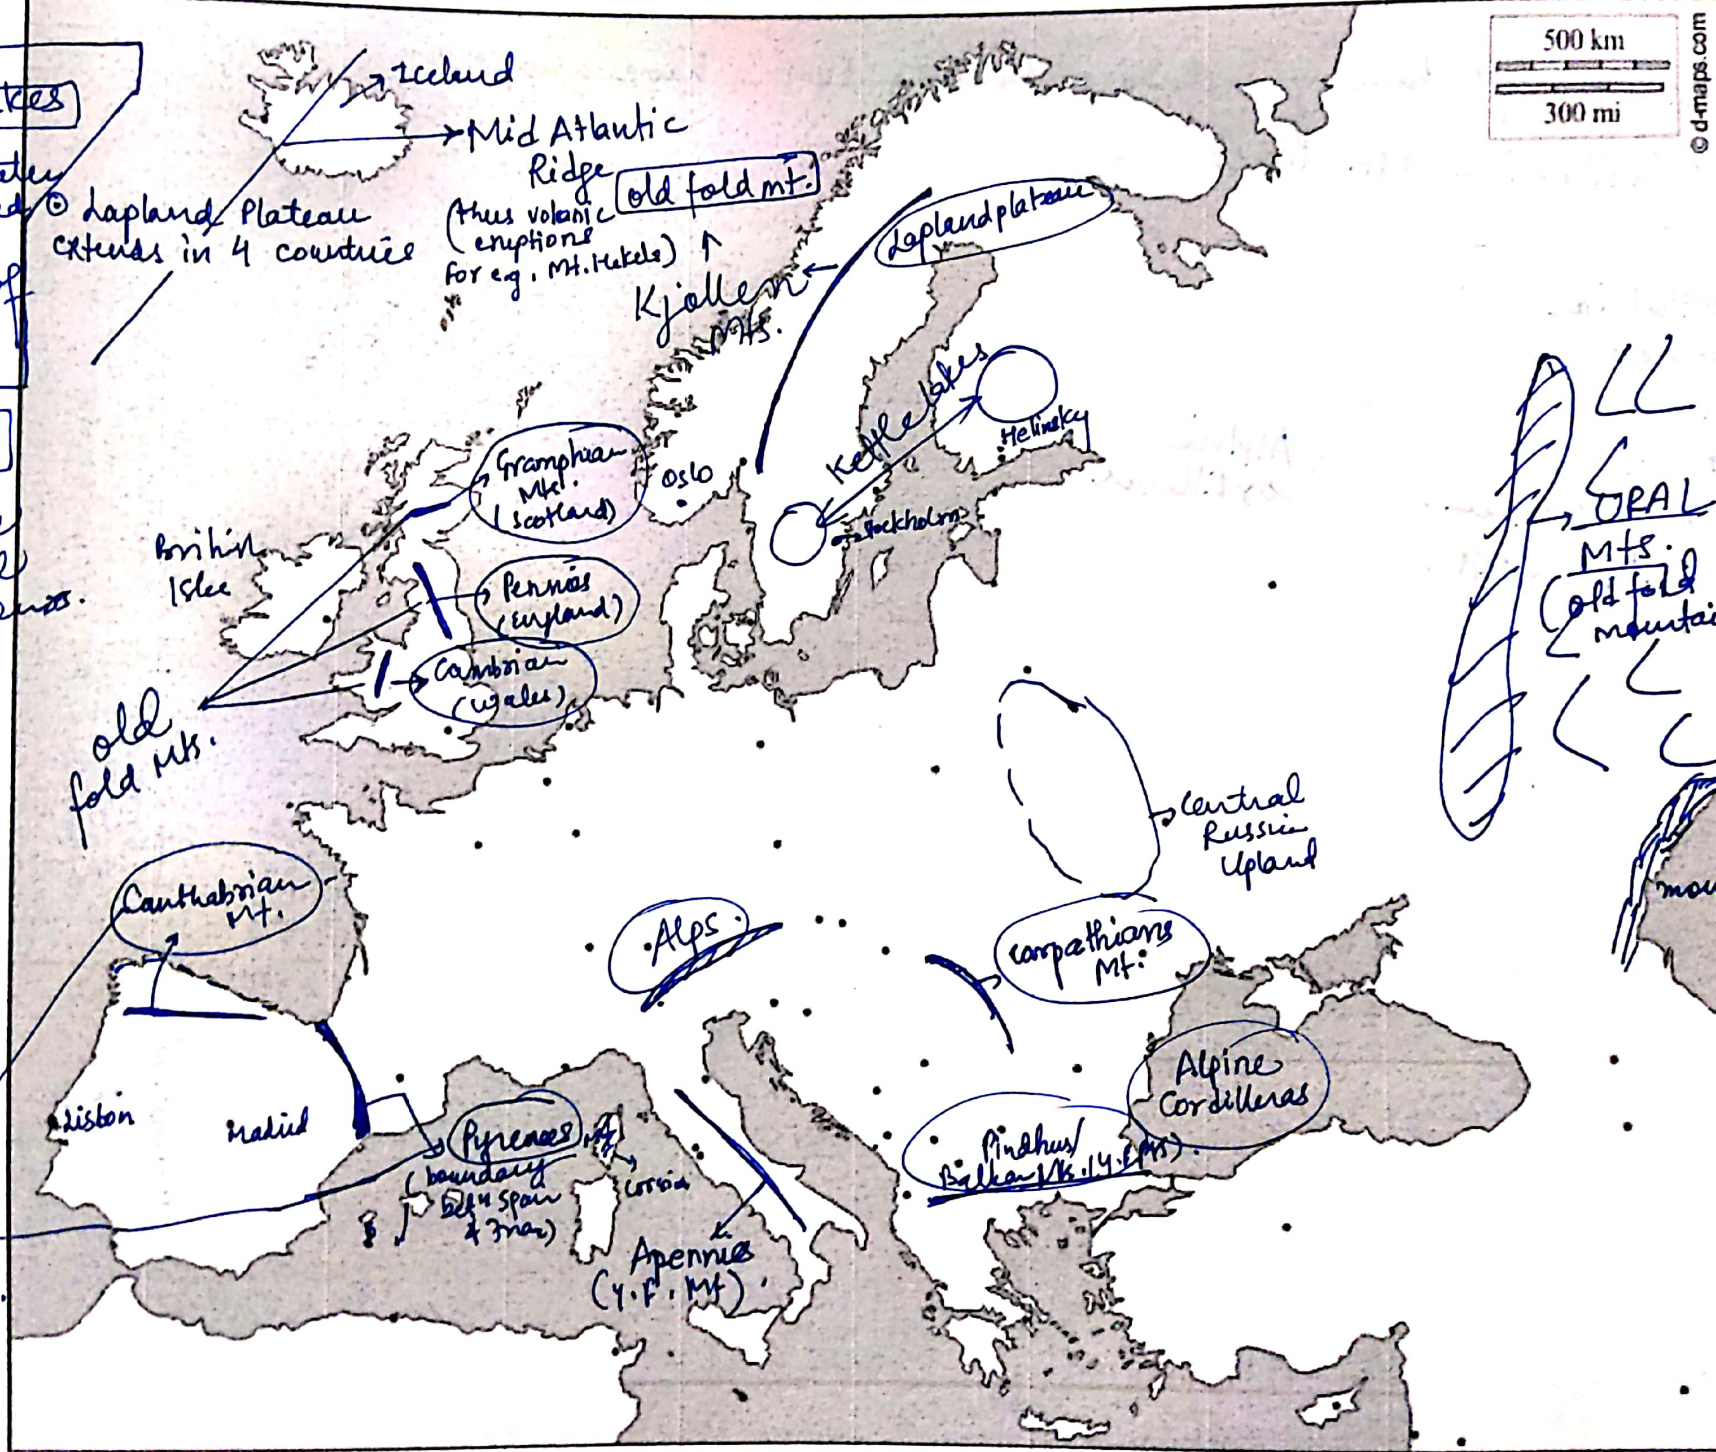 500 km
300 mi
© d-maps.com
kes
Iceland
Mid Atlantic
Ridge
(thus volanic
eruptions
for e.g. Mt. Hekele)
old fold mt.
⊙ Lapland Plateau
extends in 4 countries
Lapland plateau
Kjollen
Mts.
Kettle lakes
Helinsky
Oslo
Stockholm
Gramphian
Mts.
(Scotland)
British
Isles
Pennies
(England)
Cambrian
(Wales)
old
fold Mts.
URAL
Mts.
(old fold
mountai
Central
Russia
Upland
Canthabrian
Mt.
Alps
Carpathians
Mt.
Alpine
Cordilleras
Lisbon
Madrid
Pyrenees
(boundary
betn Spain
&
Corsica
Pindhus/
Balkan
Apennies
(Y.F. Mt)
mou